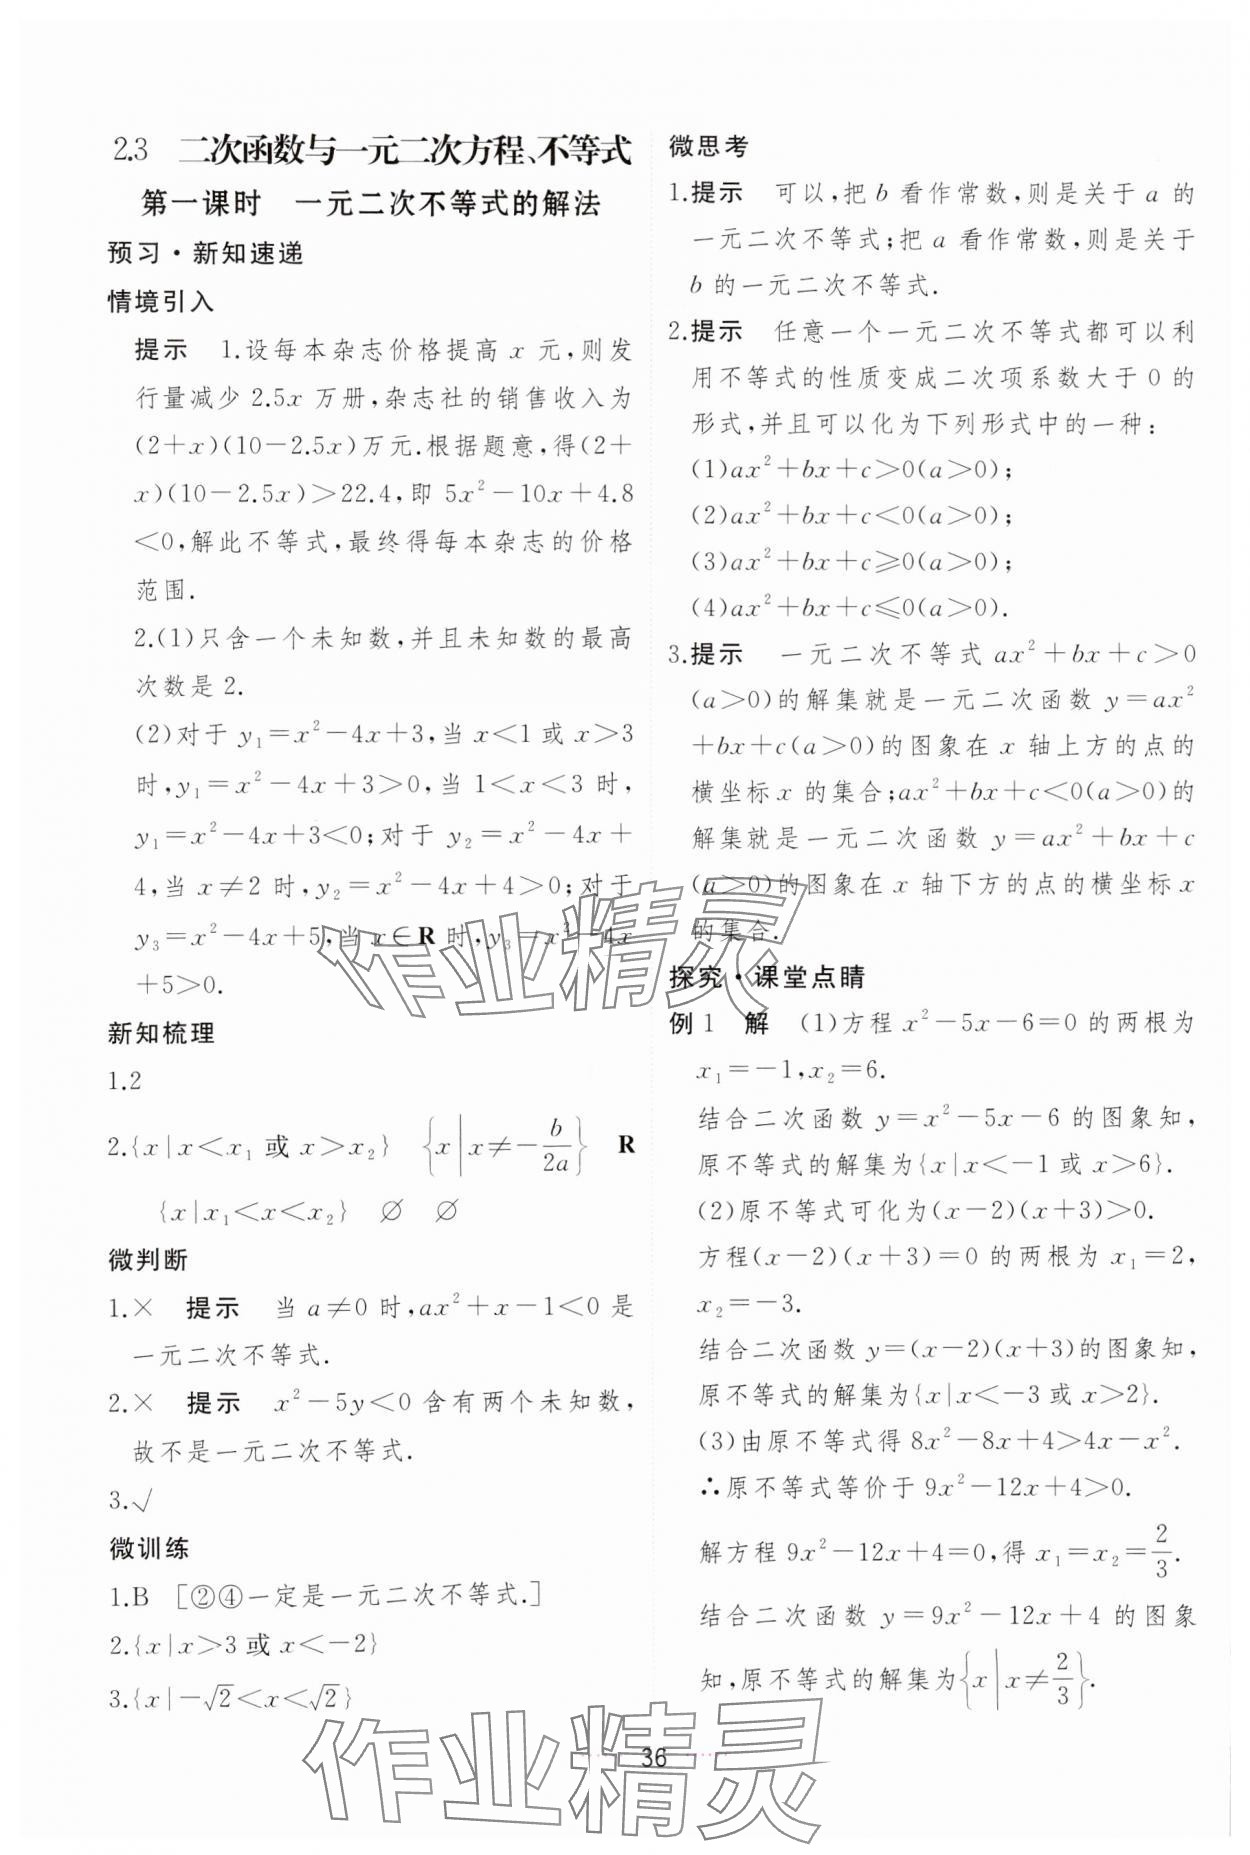 2.3 二次函数与一元二次方程、不等式
第一课时 一元二次不等式的解法
预习·新知速递
情境引入
提示 1.设每本杂志价格提高 x 元,则发
行量减少 2.5x 万册,杂志社的销售收入为
(2+x)(10-2.5x)万元.根据题意,得(2+
x)(10-2.5x)>22.4,即 5x²-10x+4.8
<0,解此不等式,最终得每本杂志的价格
范围.
2.(1)只含一个未知数,并且未知数的最高
次数是2.
(2)对于 y₁=x²-4x+3,当 x<1 或 x>3
时,y₁=x²-4x+3>0,当 1<x<3 时,
y₁=x²-4x+3<0;对于 y₂=x²-4x+
4,当 x≠2 时,y₂=x²-4x+4>0;对于
y₃=x²-4x+5,当 x∈R 时,y₃=x²-4x
+5>0.
新知梳理
1.2
2.{x|x<x₁ 或 x>x₂} {x|x≠-b/2a} R
{x|x₁<x<x₂} ∅ ∅
微判断
1.× 提示 当 a≠0 时,ax²+x-1<0 是
一元二次不等式.
2.× 提示 x²-5y<0 含有两个未知数,
故不是一元二次不等式.
3.√
微训练
1.B [②④一定是一元二次不等式.]
2.{x|x>3 或 x<-2}
3.{x|-√2<x<√2}
微思考
1.提示 可以,把 b 看作常数,则是关于 a 的
一元二次不等式;把 a 看作常数,则是关于
b 的一元二次不等式.
2.提示 任意一个一元二次不等式都可以利
用不等式的性质变成二次项系数大于 0 的
形式,并且可以化为下列形式中的一种:
(1)ax²+bx+c>0(a>0);
(2)ax²+bx+c<0(a>0);
(3)ax²+bx+c≥0(a>0);
(4)ax²+bx+c≤0(a>0).
3.提示 一元二次不等式 ax²+bx+c>0
(a>0)的解集就是一元二次函数 y=ax²
+bx+c(a>0)的图象在 x 轴上方的点的
横坐标 x 的集合;ax²+bx+c<0(a>0)的
解集就是一元二次函数 y=ax²+bx+c
(a>0)的图象在 x 轴下方的点的横坐标 x
的集合.
探究·课堂点睛
例1 解 (1)方程 x²-5x-6=0 的两根为
x₁=-1,x₂=6.
结合二次函数 y=x²-5x-6 的图象知,
原不等式的解集为{x|x<-1 或 x>6}.
(2)原不等式可化为(x-2)(x+3)>0.
方程(x-2)(x+3)=0 的两根为 x₁=2,
x₂=-3.
结合二次函数 y=(x-2)(x+3)的图象知,
原不等式的解集为{x|x<-3 或 x>2}.
(3)由原不等式得 8x²-8x+4>4x-x².
∴原不等式等价于 9x²-12x+4>0.
解方程 9x²-12x+4=0,得 x₁=x₂=2/3.
结合二次函数 y=9x²-12x+4 的图象
知,原不等式的解集为{x|x≠2/3}.
作业精灵
作业精灵
36